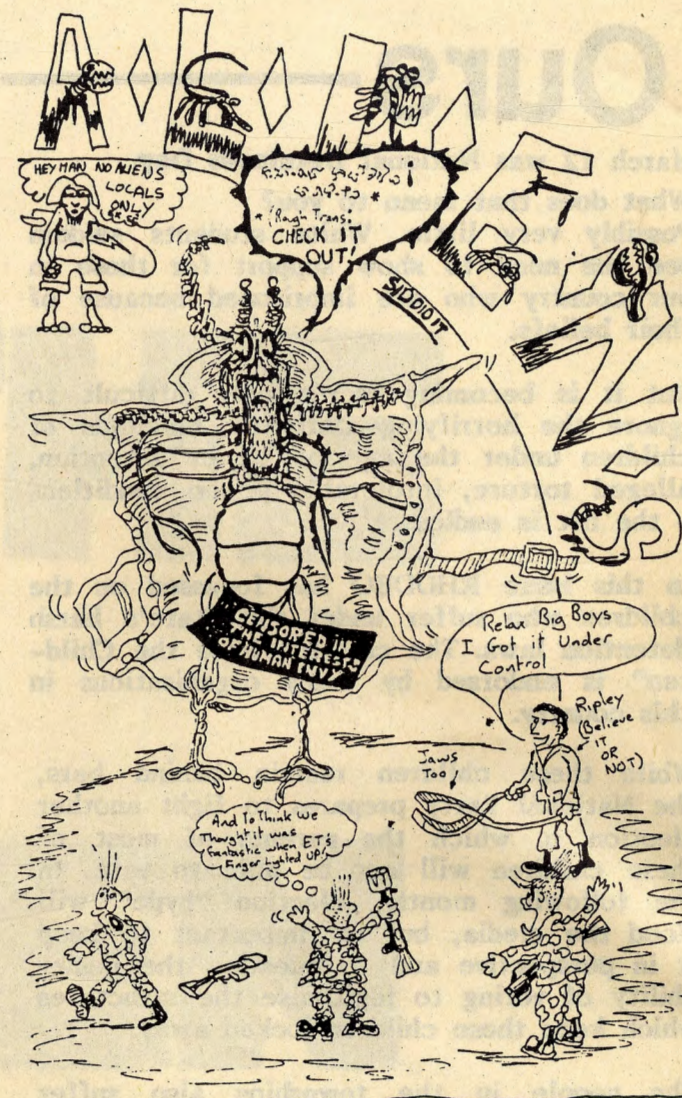 ALIENS
HEY MAN NO ALIENS
LOCALS
ONLY
(Rough Trans:
CHECK IT
OUT!
SIDDIO IT
CENSORED IN
THE INTERESTS
OF HUMAN ENVY
Relax Big Boys
I Got it Under
Control
Ripley
(Believe
IT
OR
NOT)
Jaws
Too
And To Think We
Thought it was
fantastic when ETs
Finger Lighted UP!